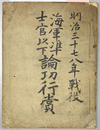 明治三十七八年戦役
海軍准
士官以下論功行賞